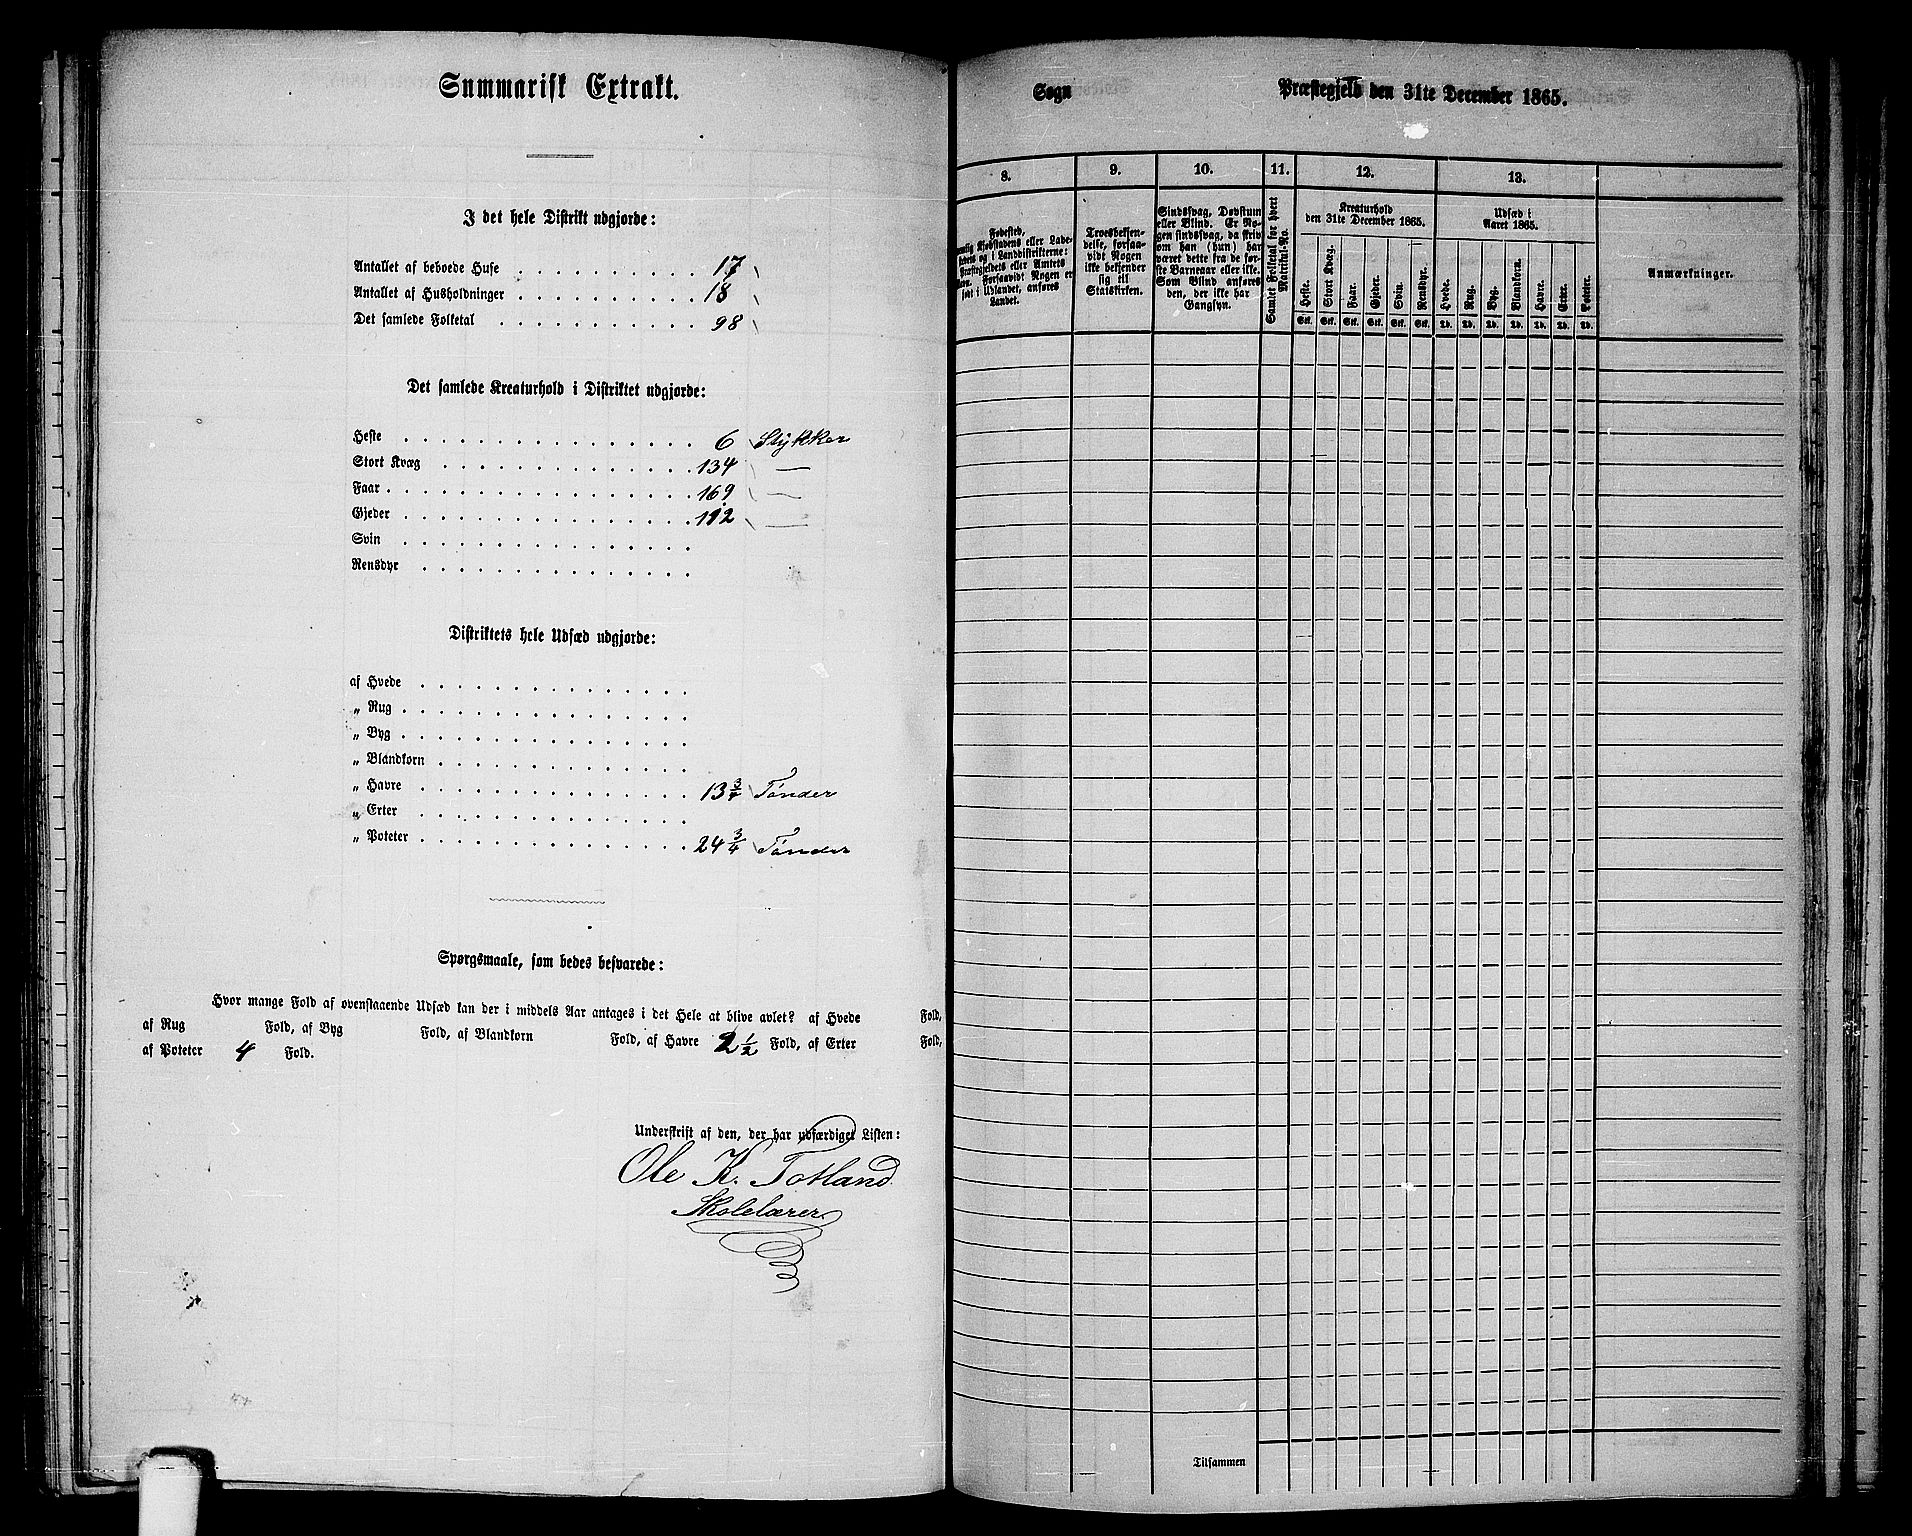 Summarisk Extrakt.
I det hele Distrikt udgjorde:
Antallet af beboede Huse . . . . . . . . . . 17
Antallet af Husholdninger . . . . . . . . . . 18
Det samlede Folketal . . . . . . . . . . . 98
Det samlede Kreaturhold i Distriktet udgjorde:
Heste . . . . . . . . . . . . . . . . 6 Stykker
Stort Kvæg . . . . . . . . . . . . . . 134 —
Faar . . . . . . . . . . . . . . . . . 169 —
Gjeder . . . . . . . . . . . . . . . . 112 —
Svin . . . . . . . . . . . . . . . .
Rensdyr . . . . . . . . . . . . . . .
Distriktets hele Udsæd udgjorde:
af Hvede . . . . . . . . . . . . . . .
„ Rug . . . . . . . . . . . . . . . .
„ Byg . . . . . . . . . . . . . . . .
„ Blandkorn . . . . . . . . . . . . . .
„ Havre . . . . . . . . . . . . . . . 13 3/4 Tønder
„ Erter . . . . . . . . . . . . . . .
„ Poteter . . . . . . . . . . . . . . . 24 3/4 Tønder
Spørgsmaale, som bedes besvarede:
Hvor mange Fold af ovenstaaende Udsæd kan der i middels Aar antages i det Hele at blive avlet? af Hvede Fold,
af Rug Fold, af Byg Fold, af Blandkorn Fold, af Havre 2 1/2 Fold, af Erter Fold,
af Poteter 4 Fold.
Underskrift af den, der har udfærdiget Listen:
Ole K. Totland
Skolelærer
Sogn Præstegjeld den 31te December 1865.
8. 9. 10. 11. 12. 13.
Fødested,
Kjøbstadens eller Lade-
stedets og i Landdistrikterne:
Præstegjeldets eller Amtets
Navn. Forsaavidt Nogen er
født i Udlandet, anføres
Landet.
Troesbekjen-
delse, forsaa-
vidt Nogen
ikke bekjender
sig til
Statskirken.
Sindssvag, Døvstum
eller Blind. Er No-
gen sindssvag, da skriv
om han (hun) har
været dette fra de før-
ste Barneaar eller ikke.
Som Blind anføres
den, der ikke har
Gangsyn.
Samlet Folketal for hvert
Matrikul-No.
Kreaturhold
den 31te December 1865.
Heste. Stort Kvæg. Faar. Gjeder. Svin. Rensdyr.
Stk. Stk. Stk. Stk. Stk. Stk.
Udsæd i
Aaret 1865.
Hvede. Rug. Byg. Blandkorn. Havre. Erter. Poteter.
Td. Td. Td. Td. Td. Td. Td.
Anmærkninger.
Tilsammen